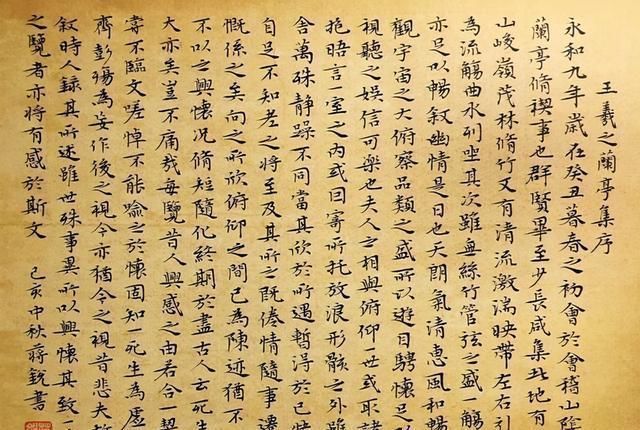 王羲之蘭亭集序
永和九年歲在癸丑暮春之初會於會稽山陰
蘭亭脩禊事也群賢畢至少長咸集此地有
山峻嶺茂林脩竹又有清流激湍映帶左右引
為流觴曲水列坐其次雖無絲竹管弦之盛一觴
亦足以暢叙幽情是日也天朗氣清惠風和暢
觀宇宙之大俯察品類之盛所以遊目騁懷足以
視聽之娛信可樂也夫人之相與俯仰一世或取諸
抱晤言一室之內或因寄所托放浪形骸之外雖
舍萬殊静躁不同當其欣於所遇暫得於己快
自足不知老之將至及其所之既倦情隨事遷
慨係之矣向之所欣俯仰之間已為陳迹猶不
不以之興懷况脩短隨化終期於盡古人云死生
大亦矣豈不痛哉每覽昔人興感之由若合一契
嘗不臨文嗟悼不能喻之於懷固知一死生為虛
齊彭殤為妄作後之視今亦猶今之視昔悲夫故
叙時人録其所述雖世殊事異所以興懷其致一
之覽者亦將有感於斯文 己亥中秋蔣銳書